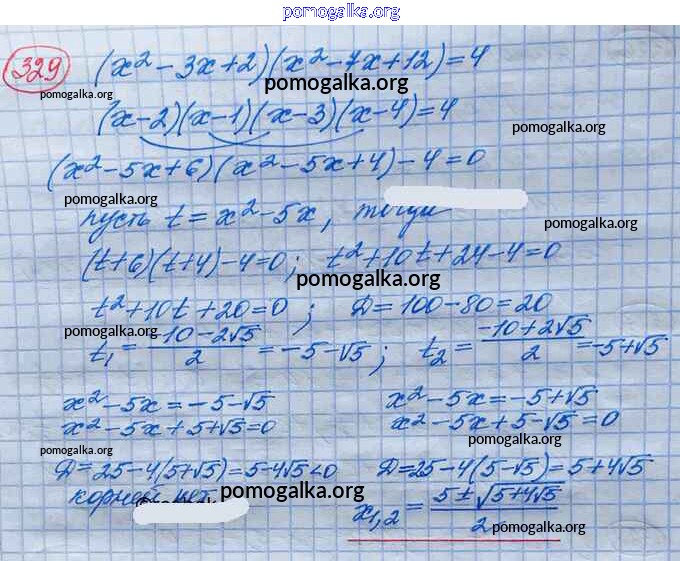 pomogalka.org
329 (x² - 3x + 2)(x² - 7x + 12) = 4
pomogalka.org
pomogalka.org
(x-2)(x-1)(x-3)(x-4) = 4
pomogalka.org
(x² - 5x + 6)(x² - 5x + 4) - 4 = 0
pomogalka.org
пусть t = x² - 5x, тогда
pomogalka.org
(t+6)(t+4) - 4 = 0; t² + 10t + 24 - 4 = 0
pomogalka.org
t² + 10t + 20 = 0; Д = 100 - 80 = 20
pomogalka.org
t₁ = (-10 - 2√5)/2 = -5 - √5; t₂ = (-10 + 2√5)/2 = -5 + √5
x² - 5x = -5 - √5
x² - 5x + 5 + √5 = 0
x² - 5x = -5 + √5
x² - 5x + 5 - √5 = 0
pomogalka.org
pomogalka.org
Д = 25 - 4(5 + √5) = 5 - 4√5 < 0
корней нет
Д = 25 - 4(5 - √5) = 5 + 4√5
pomogalka.org
x₁,₂ = (5 ± √(5 + 4√5))/2
pomogalka.org